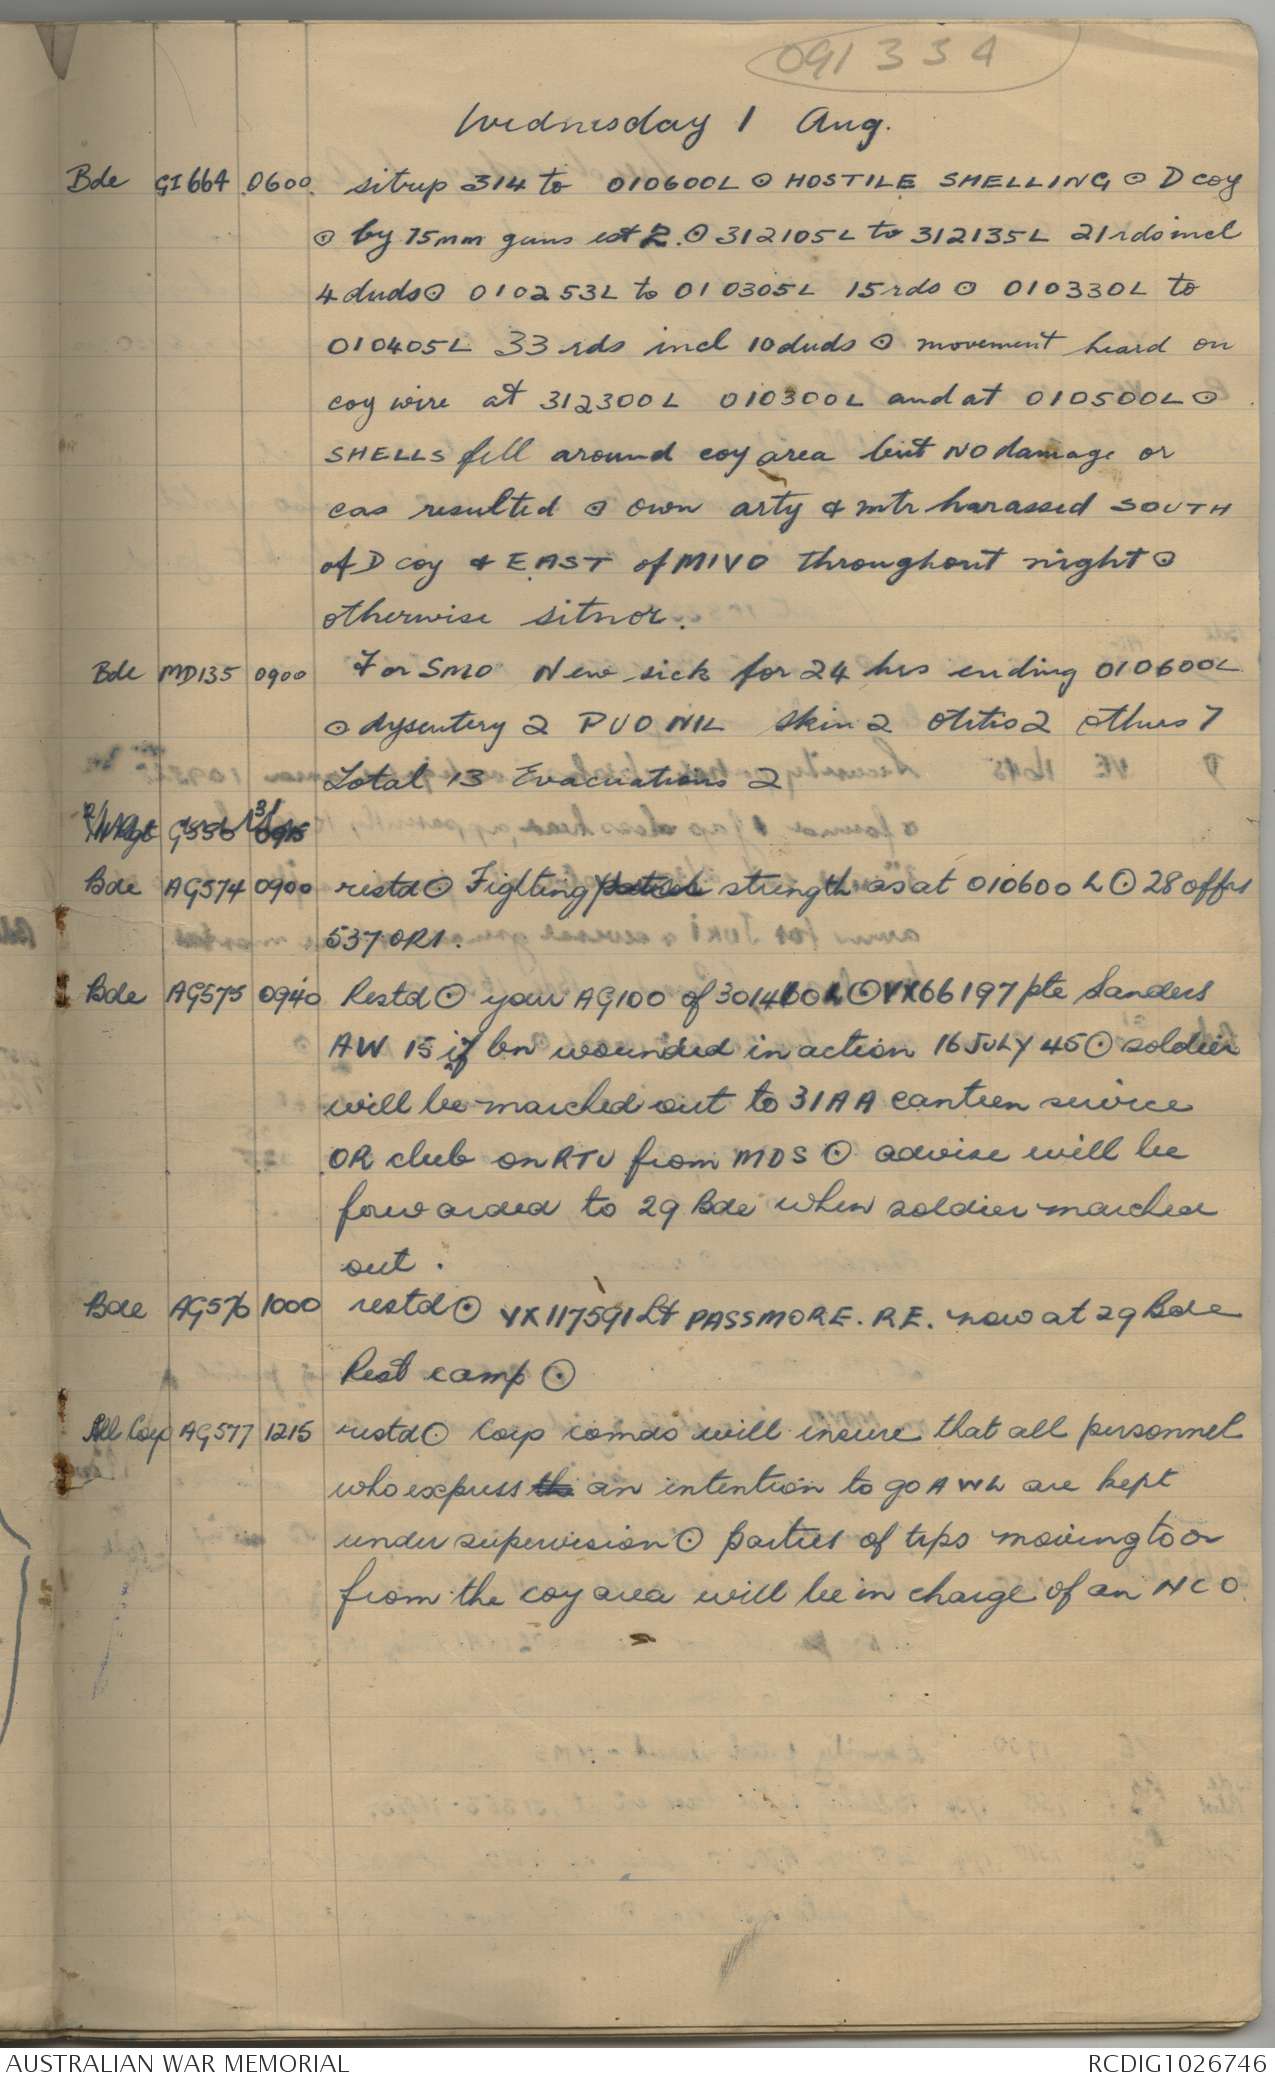 091334
Wednesday 1 Aug.
Bde GI664 0600 sitrep 314 to 010600L ⊙ HOSTILE SHELLING ⊙ D coy
⊙ by 75mm guns est 2. ⊙ 312105L to 312135L 21 rds incl
4 duds ⊙ 010253L to 010305L 15 rds ⊙ 010330L to
010405L 33 rds incl 10 duds ⊙ movement heard on
coy wire at 312300L 010300L and at 010500L ⊙
SHELLS fell around coy area but NO damage or
cas resulted ⊙ own arty & mtr harassed SOUTH
of D coy & EAST of MIVO throughout night ⊙
otherwise sitnor.
Bde MD135 0900 For SMO New sick for 24 hrs ending 010600L
⊙ dysentery 2 PUO NIL skin 2 otitis 2 others 7
Total 13 Evacuations 2
Bde AG574 0900 restd ⊙ Fighting strength as at 010600L ⊙ 28 offrs
537 ORs.
Bde AG575 0940 Restd ⊙ your AG100 of 301460L ⊙ VX66197 pte Sanders
AW 15 if bn wounded in action 16 JULY 45 ⊙ soldier
will be marched out to 31AA canteen service
OR club on RTU from MDS ⊙ advise will be
forwarded to 29 Bde when soldier marched
out.
Bde AG576 1000 restd ⊙ VX117591 Lt PASSMORE. R.E. now at 29 Bde
Rest camp ⊙
All Coys AG577 1215 restd ⊙ Coys comds will insure that all personnel
who express an intention to go AWL are kept
under supervision ⊙ parties of tps moving to or
from the coy area will be in charge of an NCO.
AUSTRALIAN WAR MEMORIAL RCDIG1026746